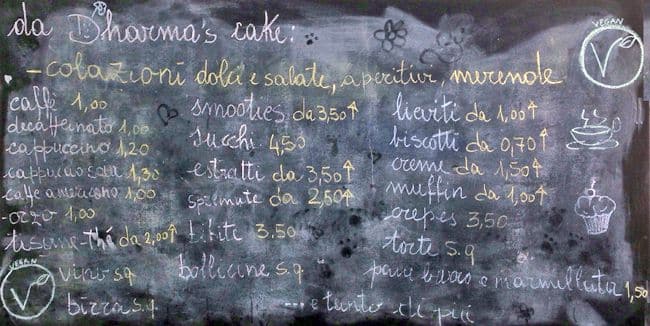 da Dharma's cake:
- colazioni dolci e salate, aperitivi, merende
caffè 1,00
decaffeinato 1,00
cappuccino 1,20
cappuccio soia 1,30
caffe americano 1,00
orzo 1,00
tisane-thé da 2,00↑
vino s.q.
birra s.q.
smooties da 3,50↑
succhi 4,50
estratti da 3,50↑
spremute da 2,50↑
bibite 3.50
bollicine s.q.
lieviti da 1,00↑
biscotti da 0,70↑
creme da 1,50↑
muffin da 1,00↑
crepes 3,50
torte s.q
pane burro e marmellata 1,50
... e tanto di più
VEGAN
V
VEGAN
V